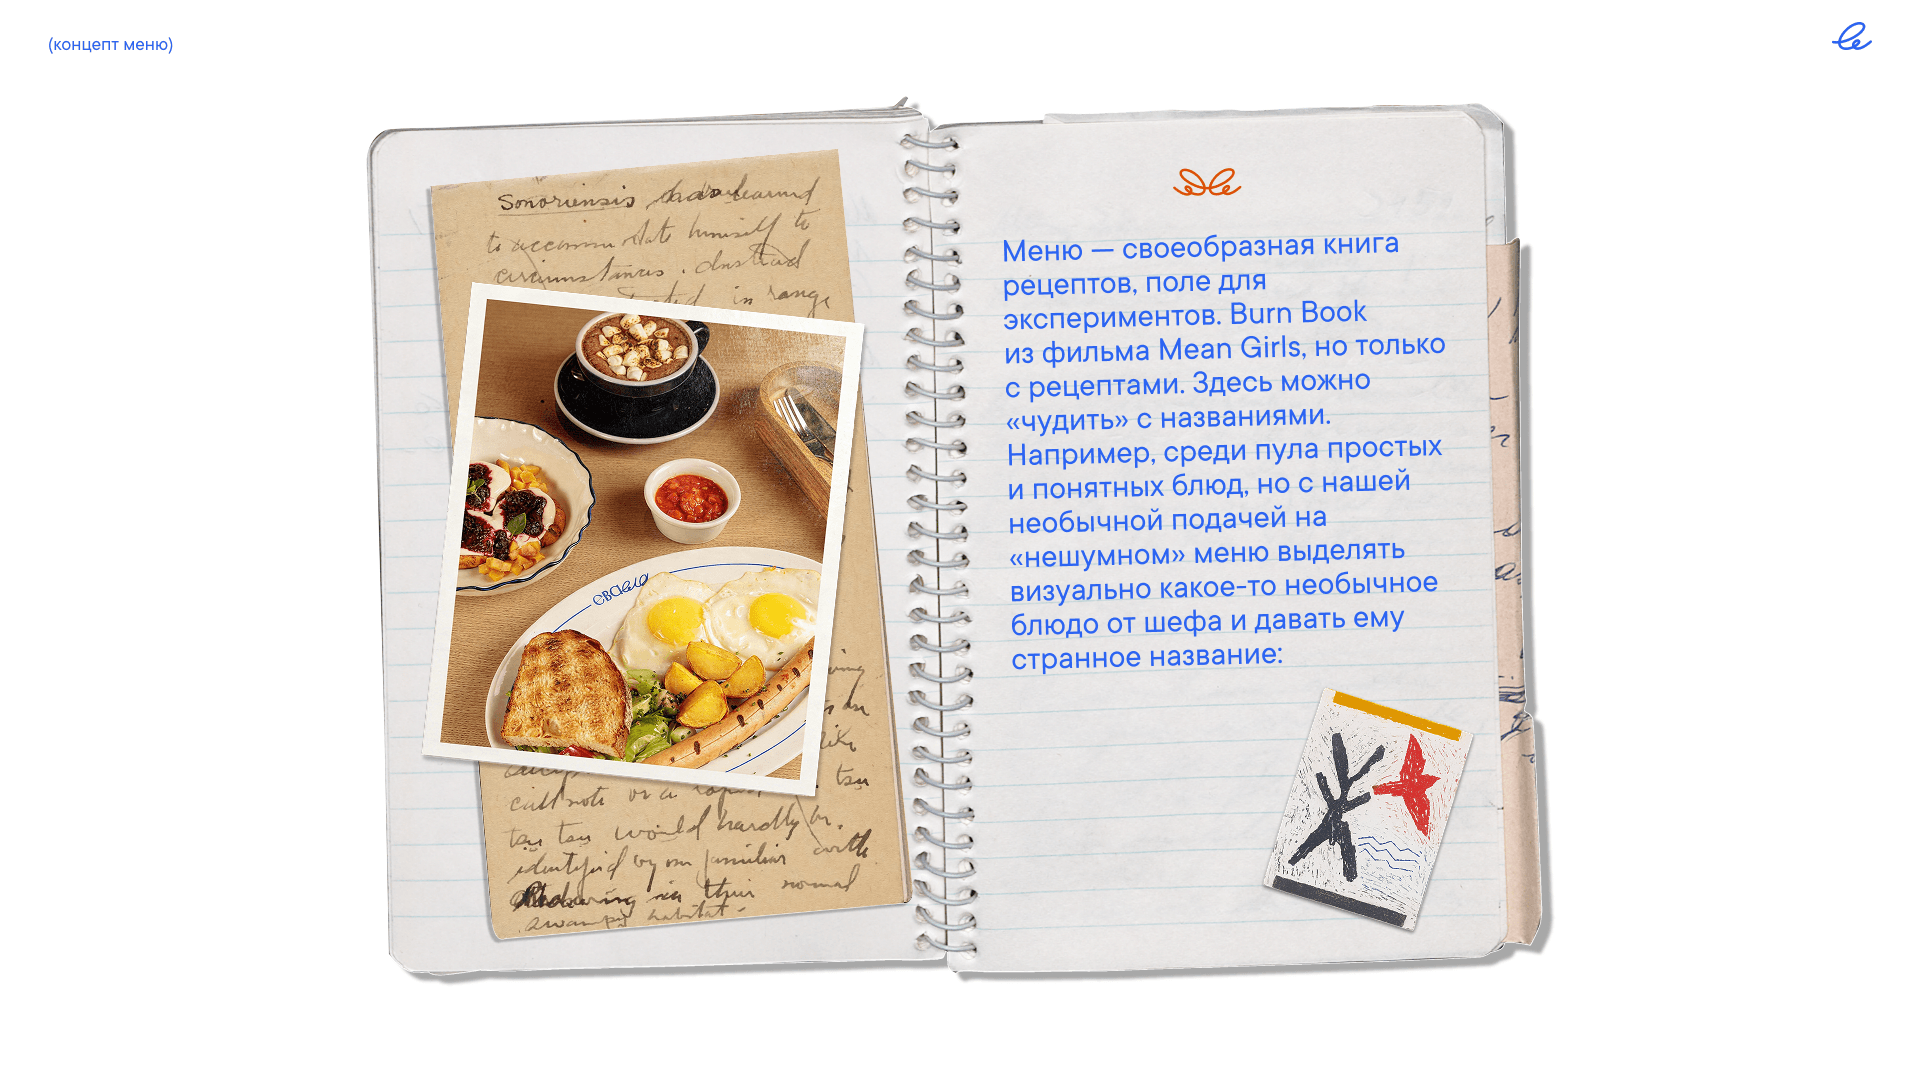 (концепт меню)
Sonoriensis has learned
to accommodate himself to
circumstances. Instead
in range
евгело
call note or a
tsu tsu would hardly be
identified by one familiar with
in their normal
swampy habitat-
Меню — своеобразная книга
рецептов, поле для
экспериментов. Burn Book
из фильма Mean Girls, но только
с рецептами. Здесь можно
«чудить» с названиями.
Например, среди пула простых
и понятных блюд, но с нашей
необычной подачей на
«нешумном» меню выделять
визуально какое-то необычное
блюдо от шефа и давать ему
странное название: